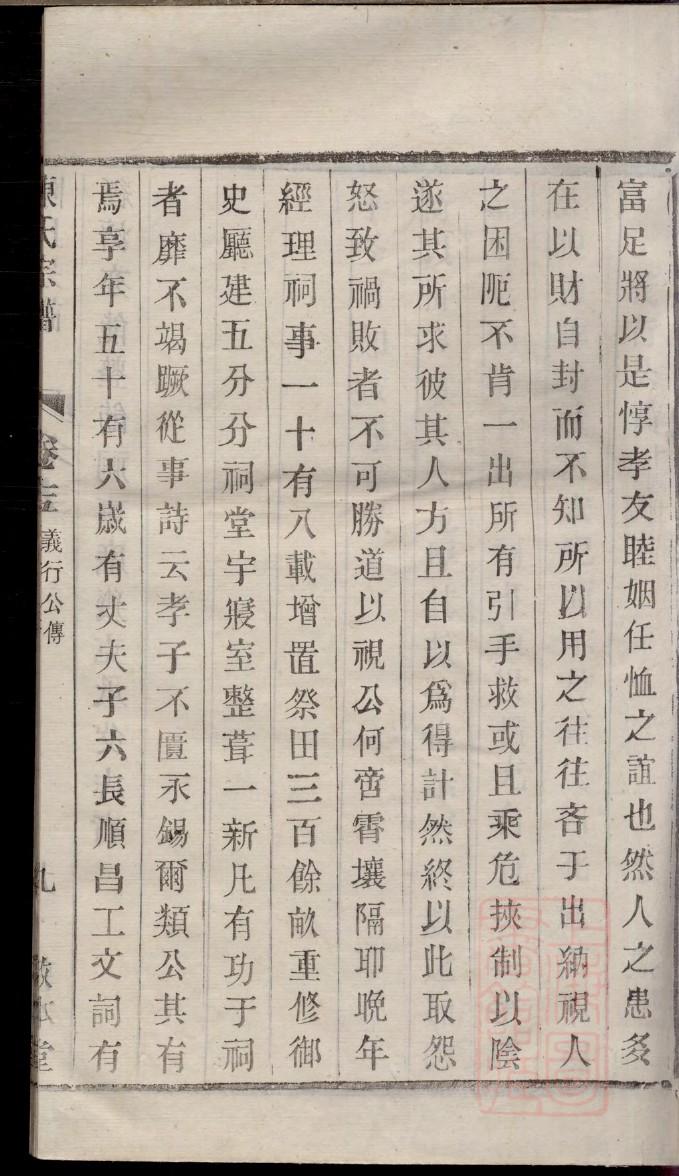 富足將以是惇孝友睦姻任恤之誼也然人之患多
在以財自封而不知所以用之往往吝于出納視人
之困阨不肯一出所有引手救或且乘危挾制以陰
遂其所求彼其人方且自以爲得計然終以此取怨
怒致禍敗者不可勝道以視公何啻霄壤隔耶晚年
經理祠事一十有八載增置祭田三百餘畝重修御
史廳建五分分祠堂宇寢室整葺一新凡有功于祠
者靡不竭蹶從事詩云孝子不匱永錫爾類公其有
焉享年五十有六歲有丈夫子六長順昌工文詞有
陳氏宗譜
卷十三
義行公傳
九
敦本堂